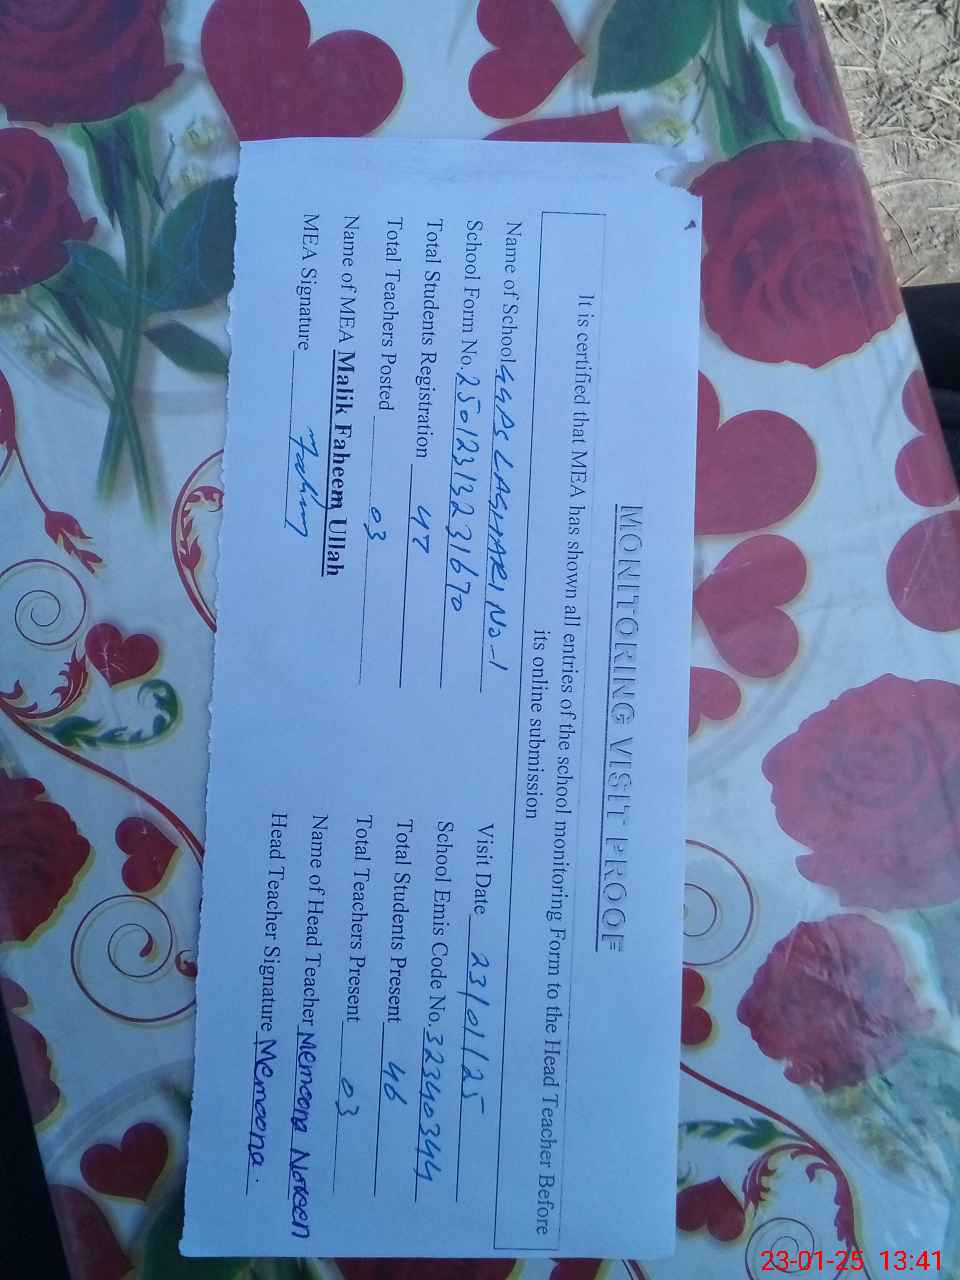 MONITORING VISIT PROOF
It is certified that MEA has shown all entries of the school monitoring Form to the Head Teacher Before
its online submission
Name of School GGPS LASHARI No-1 Visit Date 23/01/25
School Form No. 25012313231670 School Emis Code No. 32340344
Total Students Registration 47 Total Students Present 46
Total Teachers Posted 03 Total Teachers Present 03
Name of MEA Malik Faheem Ullah Name of Head Teacher Memoona Noreen
MEA Signature Fahim Head Teacher Signature Memoona.
23-01-25 13:41